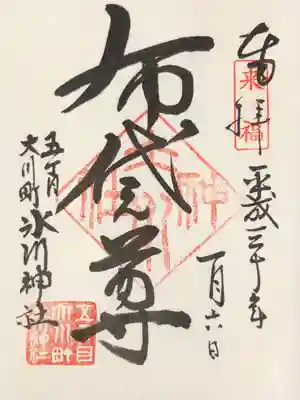 奉拝
来福
平成三十年
一月六日
布袋尊
五丁目
大川町
氷川神社
五丁目
大川町
氷川神社